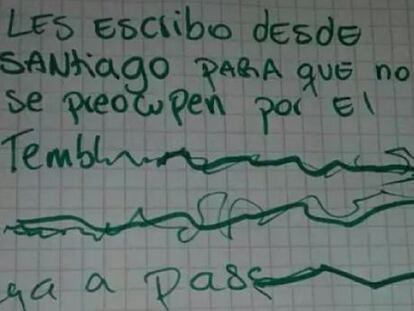 LES ESCRIBO DESDE
SANTIAGO PARA QUE NO
SE PREOCUPEN POR EL
Tembl
ya a Pas